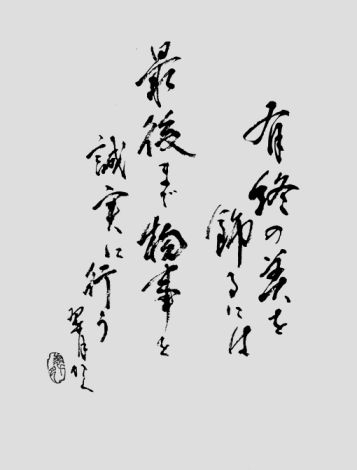 有終の美を
飾るには
最後まで物事を
誠実に行う
翠月